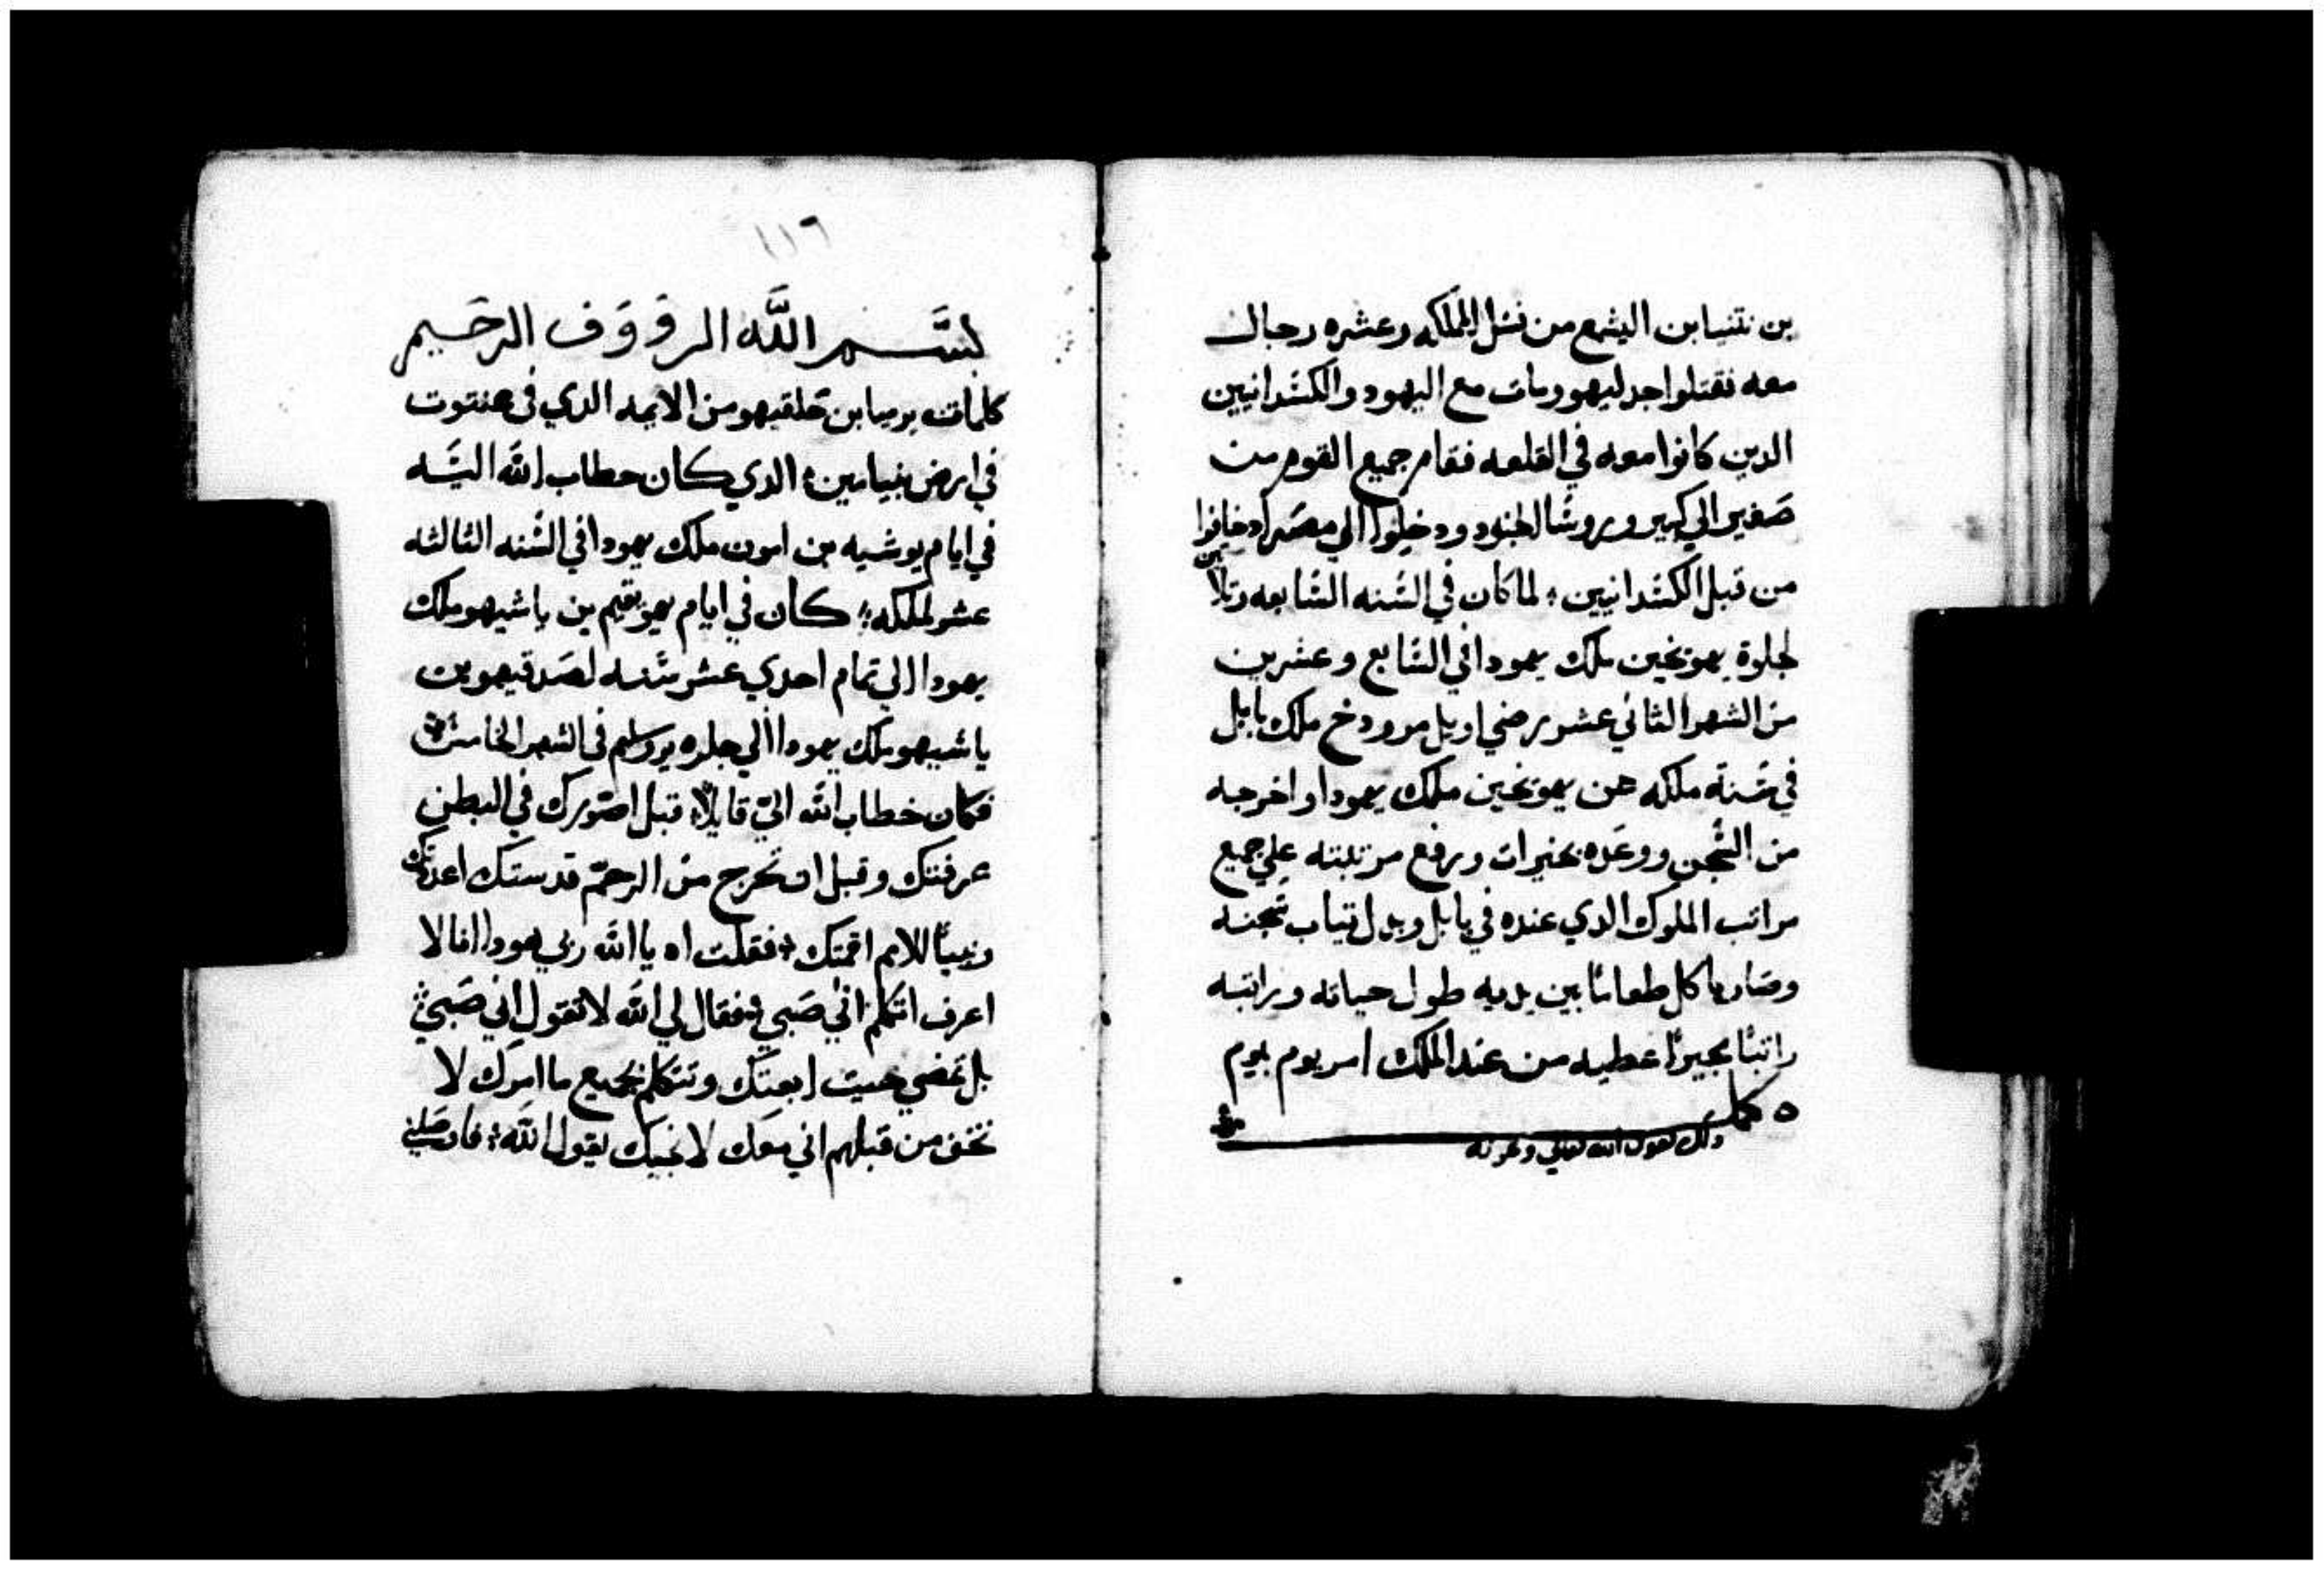 بن نتنيا بن اليشمع من نسل المملكه وعشره رجال
معه فقتلوا جدليهو ومات مع اليهود والكسدانيين
الدين كانوا معه في القلعه فقام جميع القوم من
صغير الي كبير وروسا الجنود ودخلوا الي مصر اد خافوا
من قبل الكسدانيين لما كان في السنه السابعه وتلاتين
لجلوة يهونخين ملك يهودا في السابع وعشرين
من الشهر الثاني عشر رضي اويل مرودخ ملك بابل
في سنة ملكه عن يهونخين ملك يهودا واخرجه
من السجن ووعده بخيرات ورفع مرتبته علي جميع
مراتب الملوك الدي عنده في بابل وبدل تياب سجنه
وصار ياكل طعاما بين يديه طول حياته وراتبه
راتبا يجيرا عطيه من عند الملك امر يوم بيوم
كمل
دلك بعون الله تعالي وعونه
١١٦
بسم الله الروووف الرحيم
كلمات يرميا بن حلقيهو من الايمه الدي في عنتوت
في ارض بنيامين الدي كان خطاب الله اليه
في ايام يوشيه بن امون ملك يهودا في السنه الثالثه
عشر لملكه كان في ايام يهويقيم بن ياشيهو ملك
يهودا الي تمام احدي عشر سنه لصدقيهو بن
ياشيهو ملك يهودا الي جلوه يروسلم في الشهر الخامس
فكان خطاب الله الي قايلا قبل اصورك في البطن
عرفتك وقبل ان تخرج من الرحم قدستك اعددتك
ونبيا للامم اقمتك فقلت اه يا الله ربي هودا انا لا
اعرف اتكلم اني صبي فقال لي الله لا تقول اني صبي
بل تمضي حيت ابعتك وتتكلم بجميع ما امرك لا
تخف من قبلهم اني معك لانجيك يقول الله